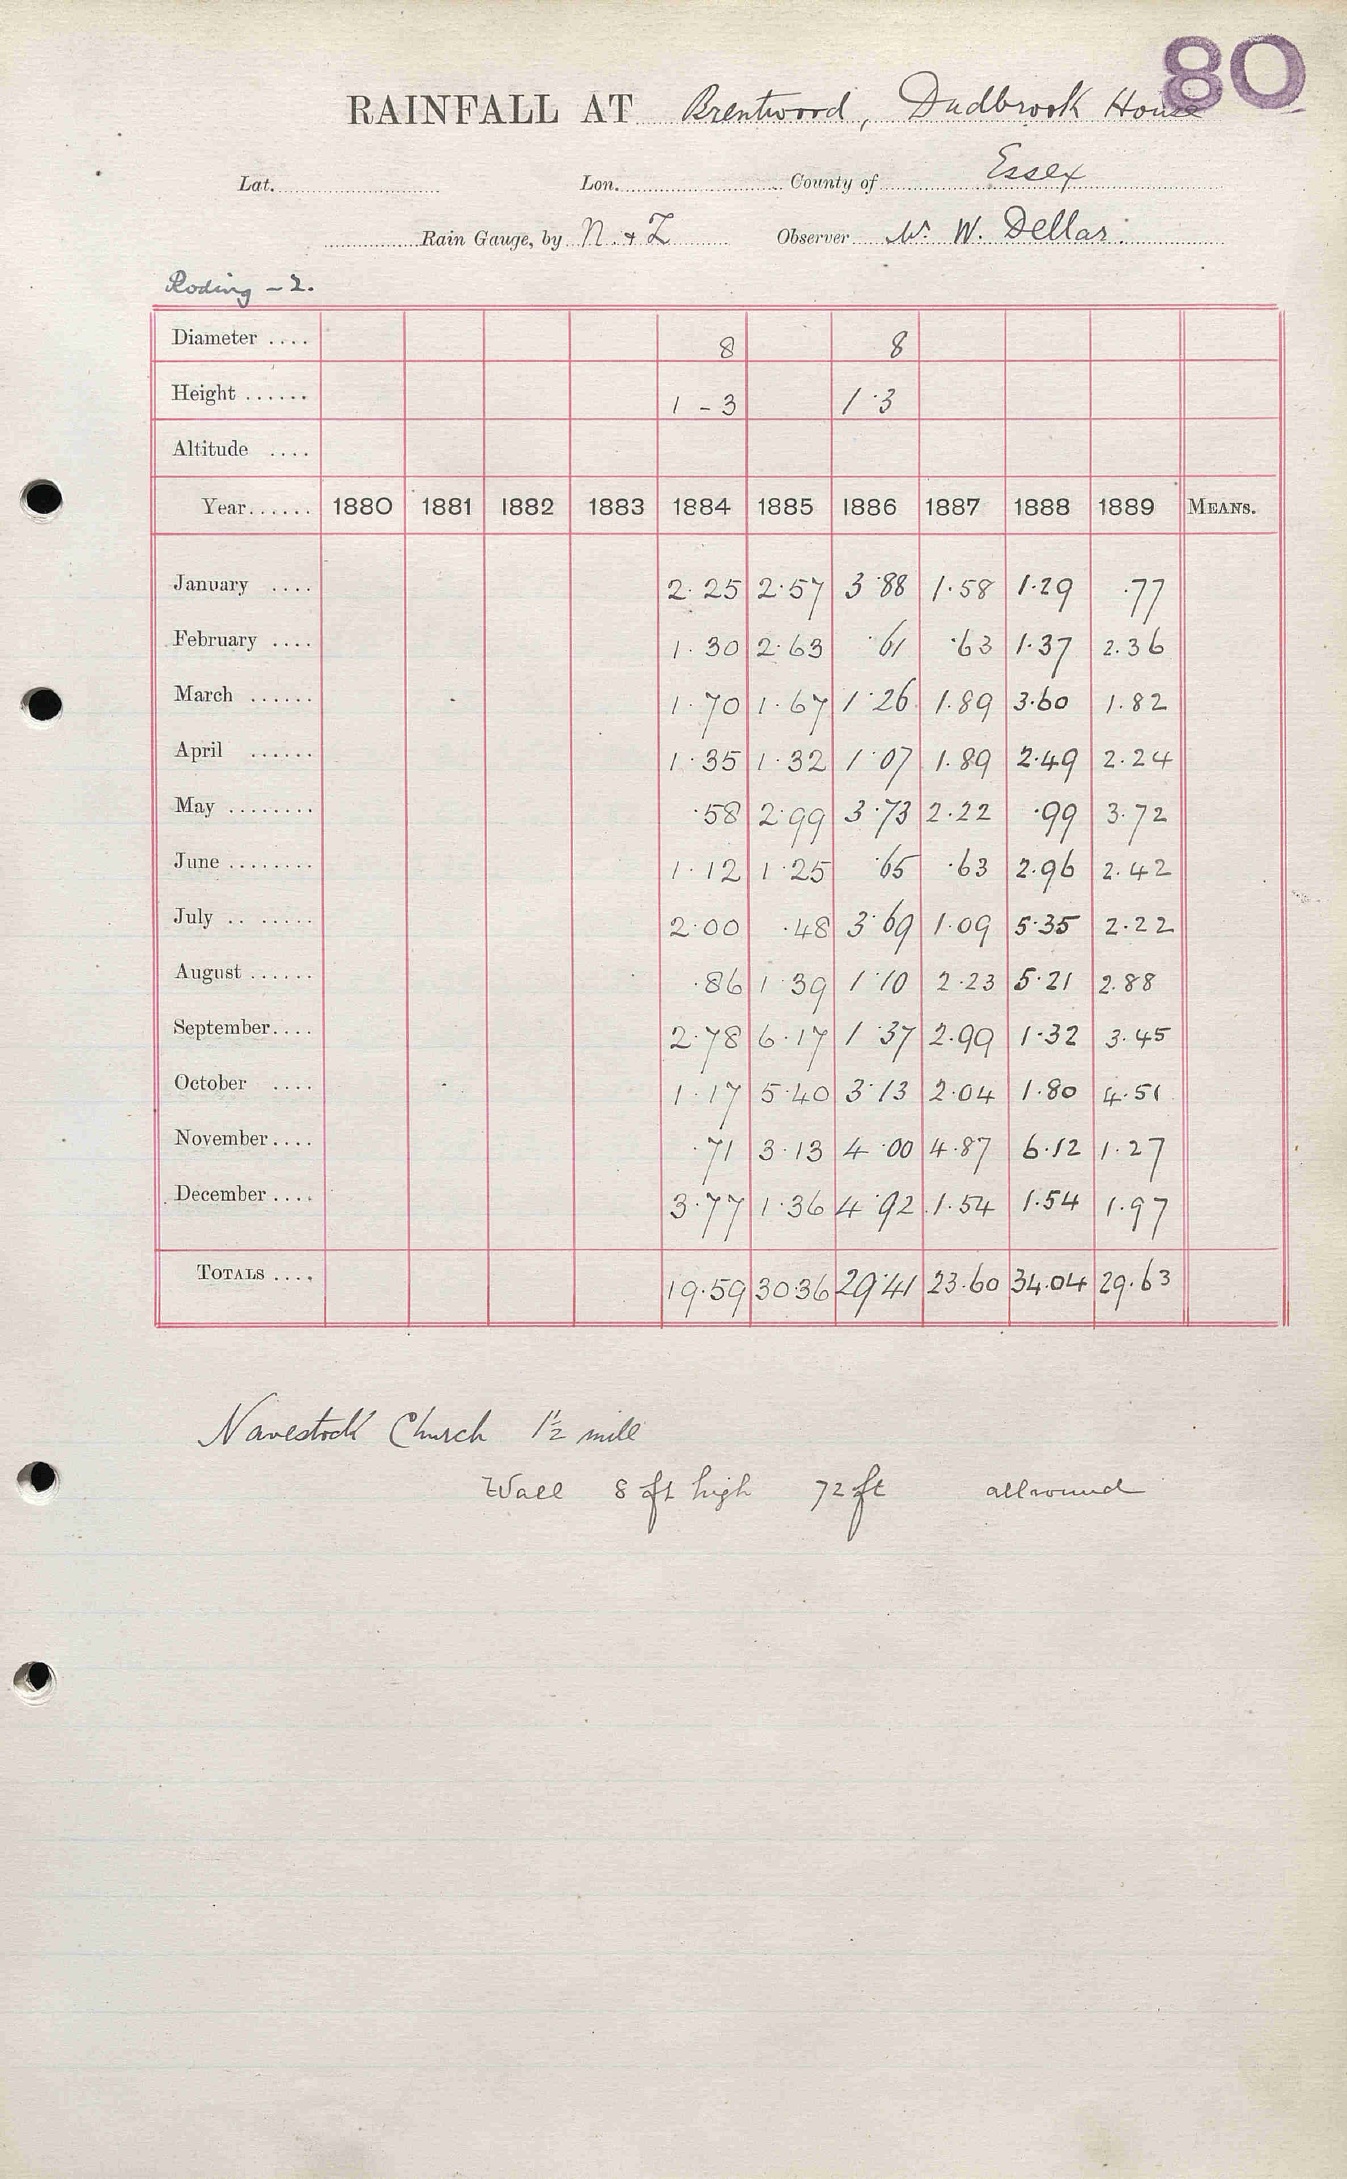 80
RAINFALL AT Brentwood, Dudbrook House
Lat. Lon. County of Essex
Rain Gauge, by N. & Z Observer Mr. W. Dellar.
Roding - 2.
Diameter .... 8 8
Height ...... 1 - 3 1·3
Altitude ....
Year...... 1880 1881 1882 1883 1884 1885 1886 1887 1888 1889 MEANS.
January .... 2.25 2.57 3.88 1.58 1.29 .77
February .... 1.30 2.63 .61 .63 1.37 2.36
March ...... 1.70 1.67 1.26 1.89 3.60 1.82
April ...... 1.35 1.32 1.07 1.89 2.49 2.24
May ........ .58 2.99 3.73 2.22 .99 3.72
June ........ 1.12 1.25 .65 .63 2.96 2.42
July .. ..... 2.00 .48 3.69 1.09 5.35 2.22
August ...... .86 1.39 1.10 2.23 5.21 2.88
September.... 2.78 6.17 1.37 2.99 1.32 3.45
October .... 1.17 5.40 3.13 2.04 1.80 4.51
November.... .71 3.13 4.00 4.87 6.12 1.27
December.... 3.77 1.36 4.92 1.54 1.54 1.97
TOTALS .... 19.59 30.36 29.41 23.60 34.04 29.63
Navestock Church 1½ mile
Wall 8 ft high 72 ft all round